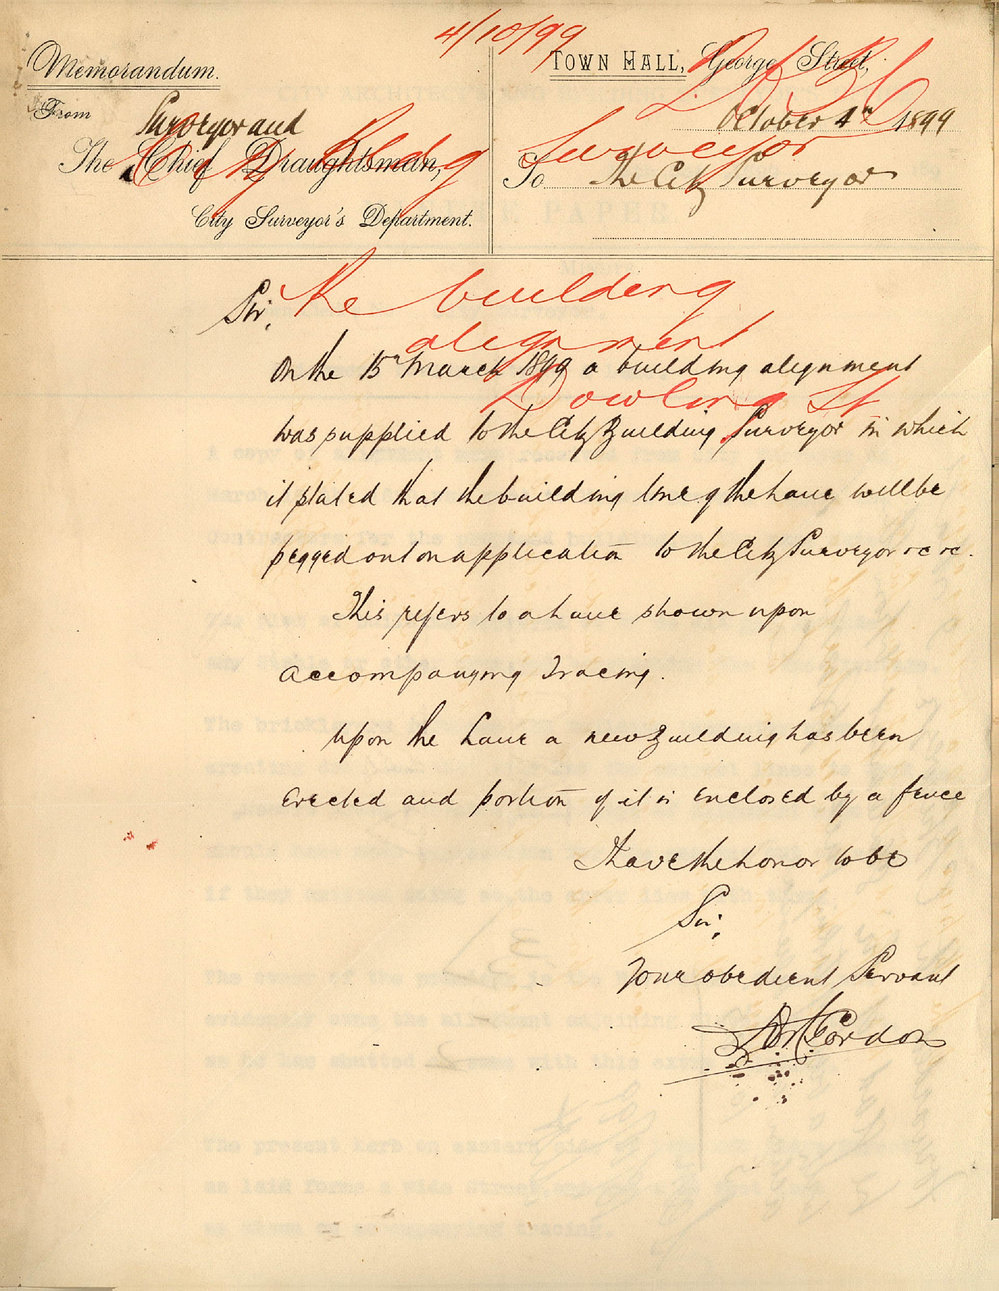 4/10/99
Memorandum.
Town Hall, George Street,
From
October 4th 1899
Surveyor and
The Chief Draughtsman,
City Bldg
Surveyor
To The City Surveyor
City Surveyor's Department.
Sir,
Re building
alignment
Dowling St
On the 15th March 1899 a building alignment
was supplied to the City Building Surveyor in which
it stated that the building line of the lane will be
pegged out on application to the City Surveyor &c &c.
This refers to a lane shown upon
accompanying tracing.
Upon the lane a new Building has been
erected and portion of it is enclosed by a fence
I have the honor to be
Sir,
Your obedient Servant
Gordon